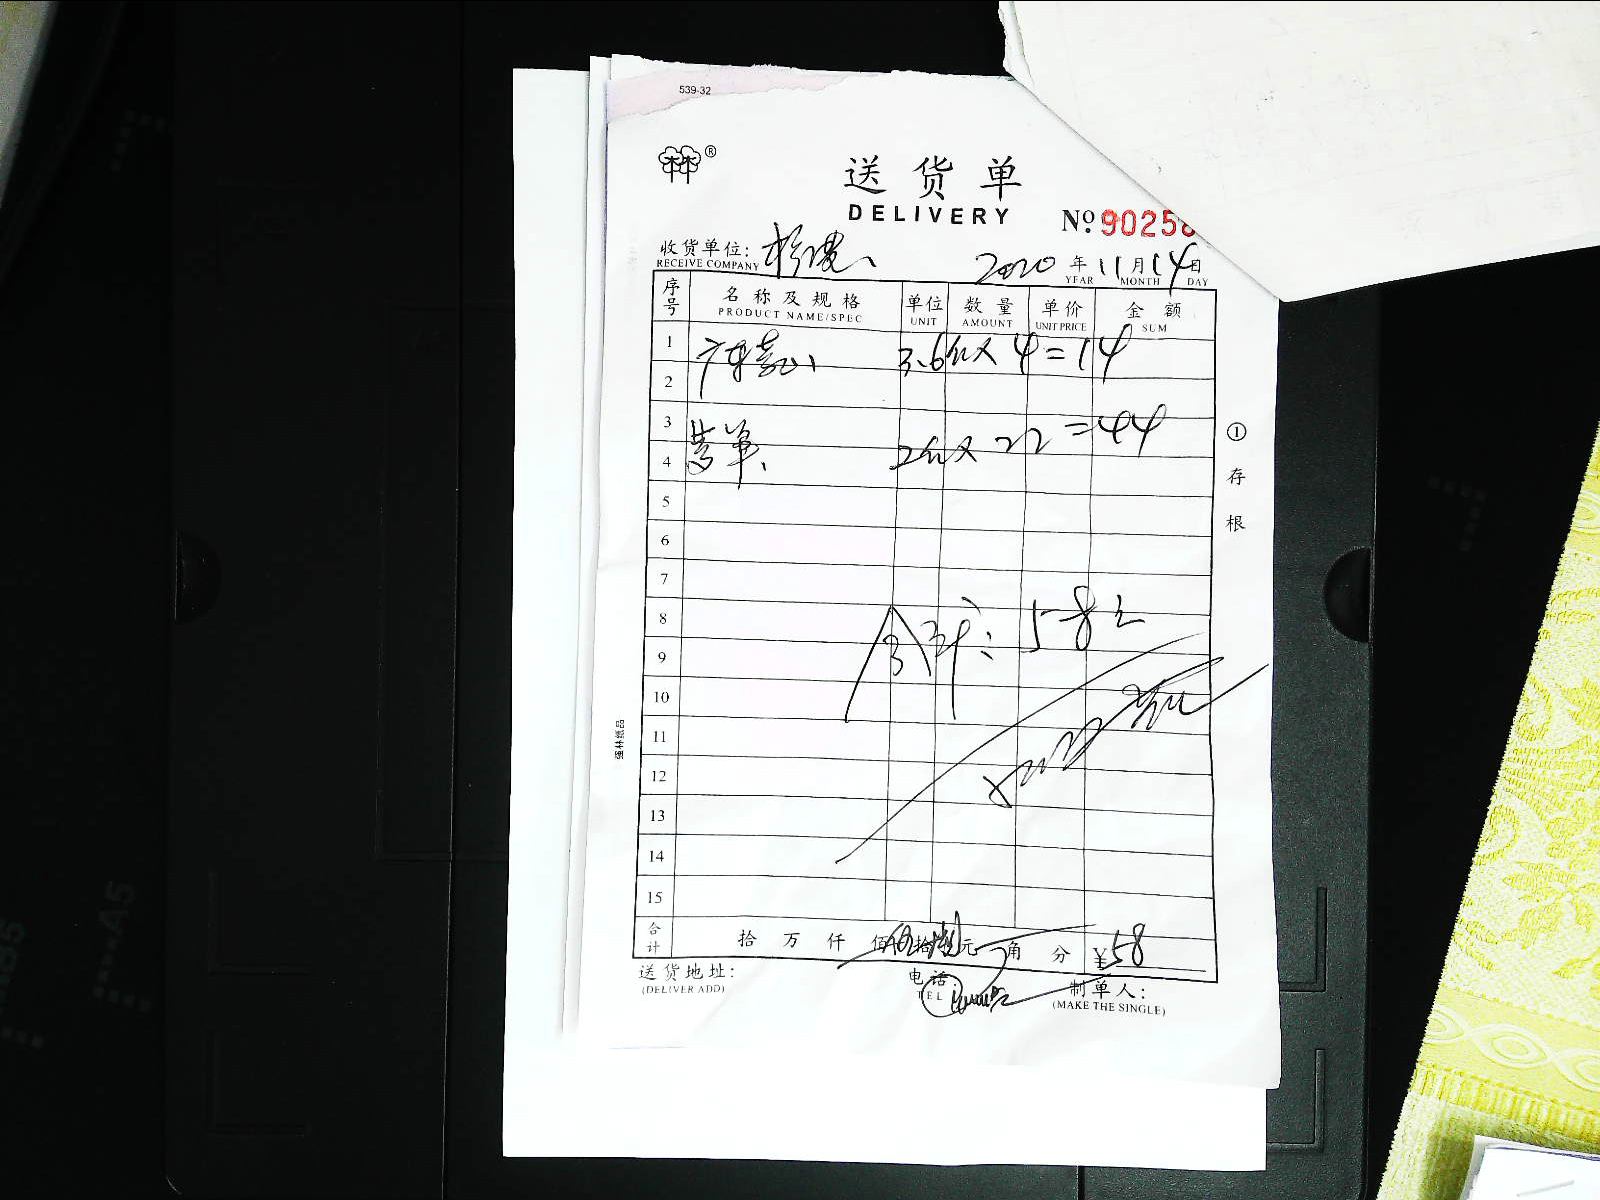 539-32
®
送货单
DELIVERY
№ 90258
收货单位:
RECEIVE COMPANY
2020 年 11 月 14 日
YEAR MONTH DAY
序号 名称及规格 单位 数量 单价 金额
PRODUCT NAME/SPEC UNIT AMOUNT UNIT PRICE SUM
1 3.6斤× 4=14
2
3 2斤× 22 =44
4
5
6
7
8 合计: 58元
9
10
11
12
13
14
15
合计 拾 万 仟 佰 伍拾捌元 角 分 ¥58
送货地址: 电话: 制单人:
(DELIVER ADD) TEL (MAKE THE SINGLE)
①存根
强林纸品
A5